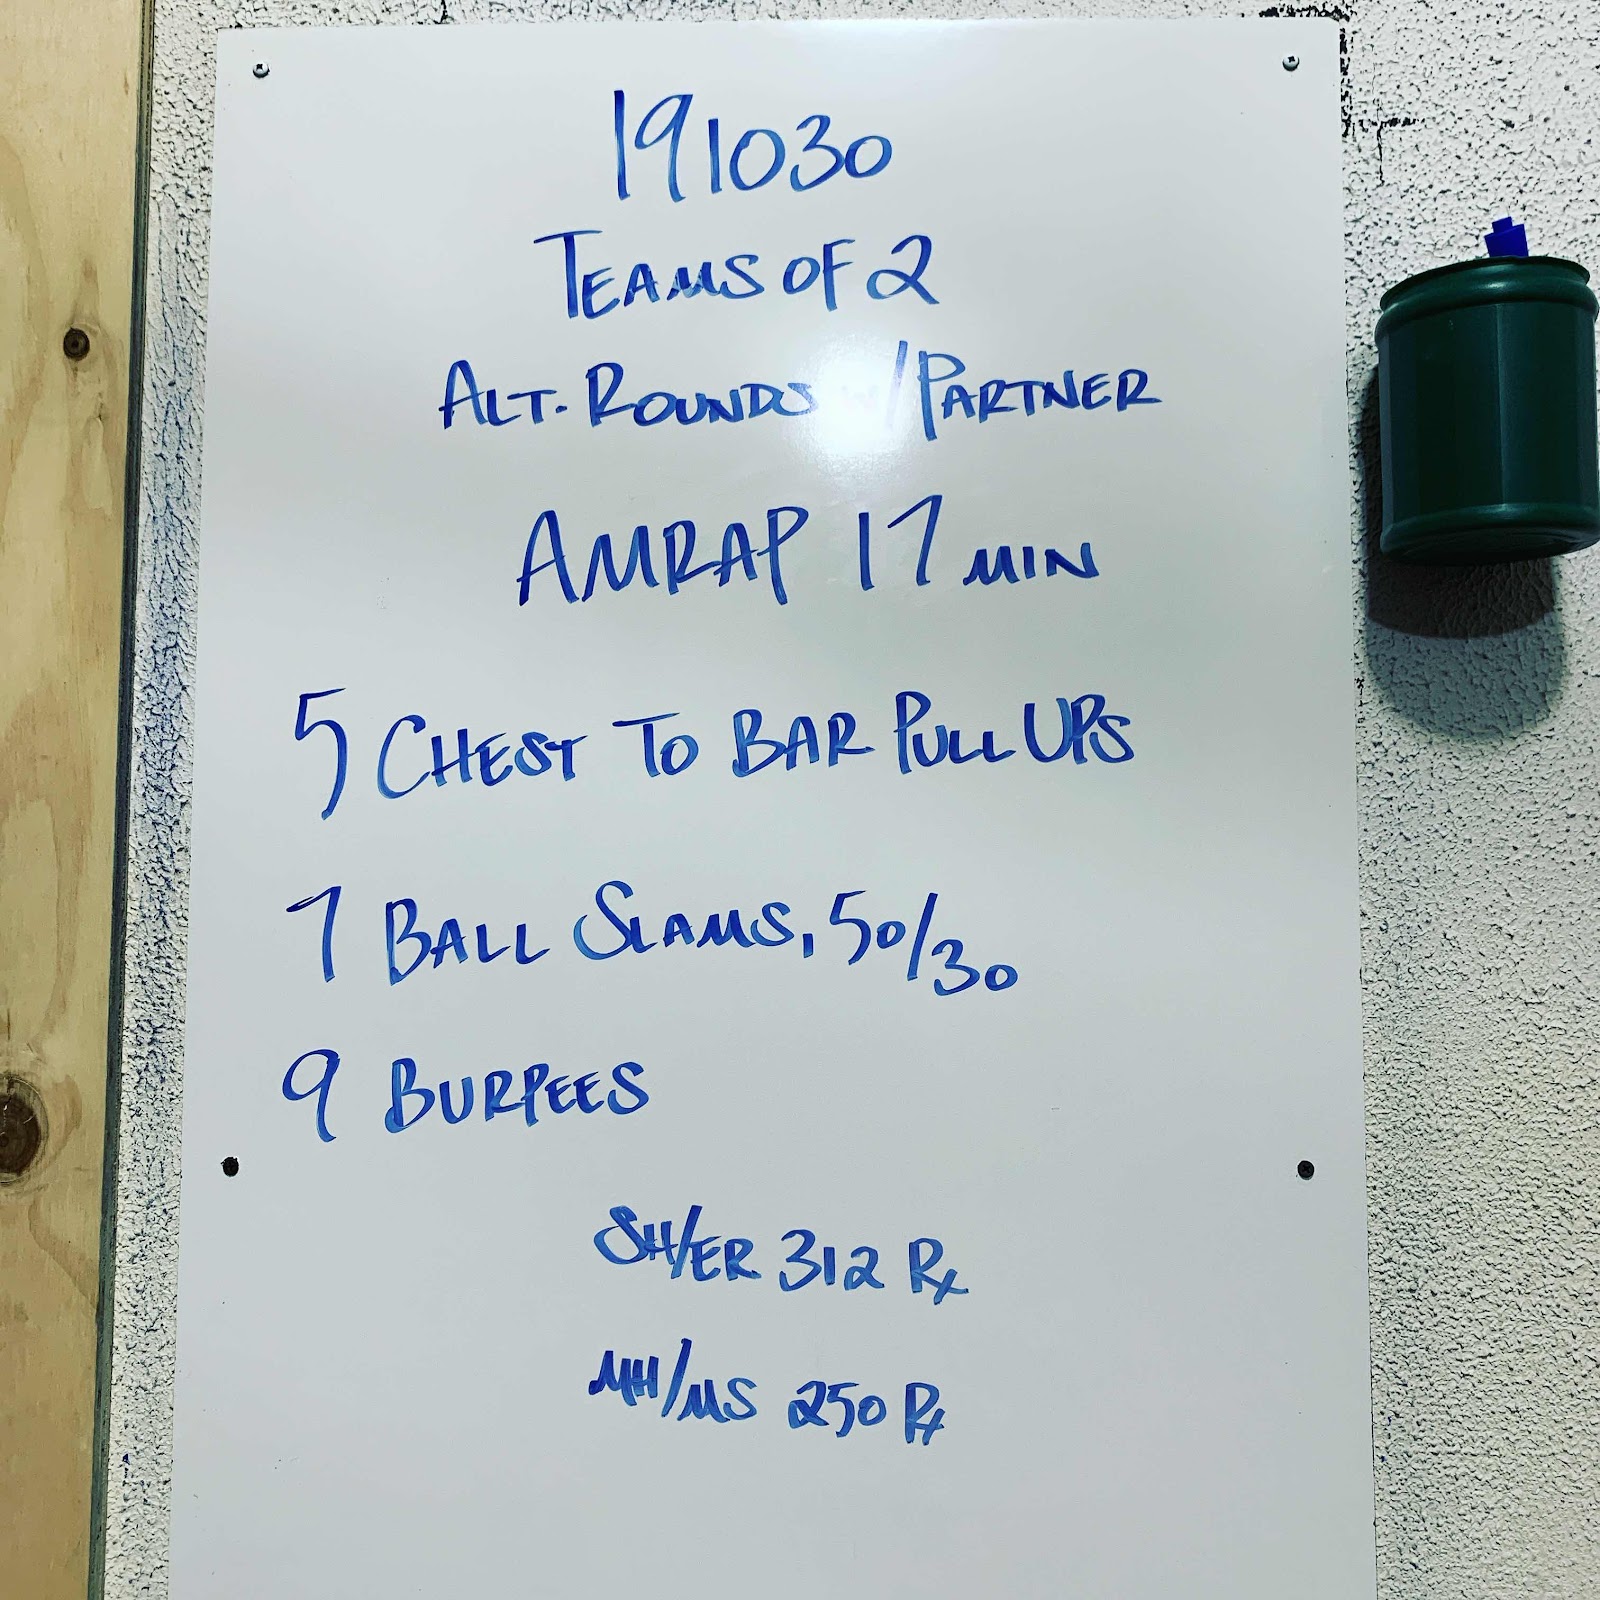 191030
TEAMS OF 2
ALT. ROUNDS W/PARTNER
AMRAP 17 MIN
5 CHEST TO BAR PULL UPS
7 BALL SLAMS, 50/30
9 BURPEES
SH/ER 312 Rx
MH/MS 250 Rx